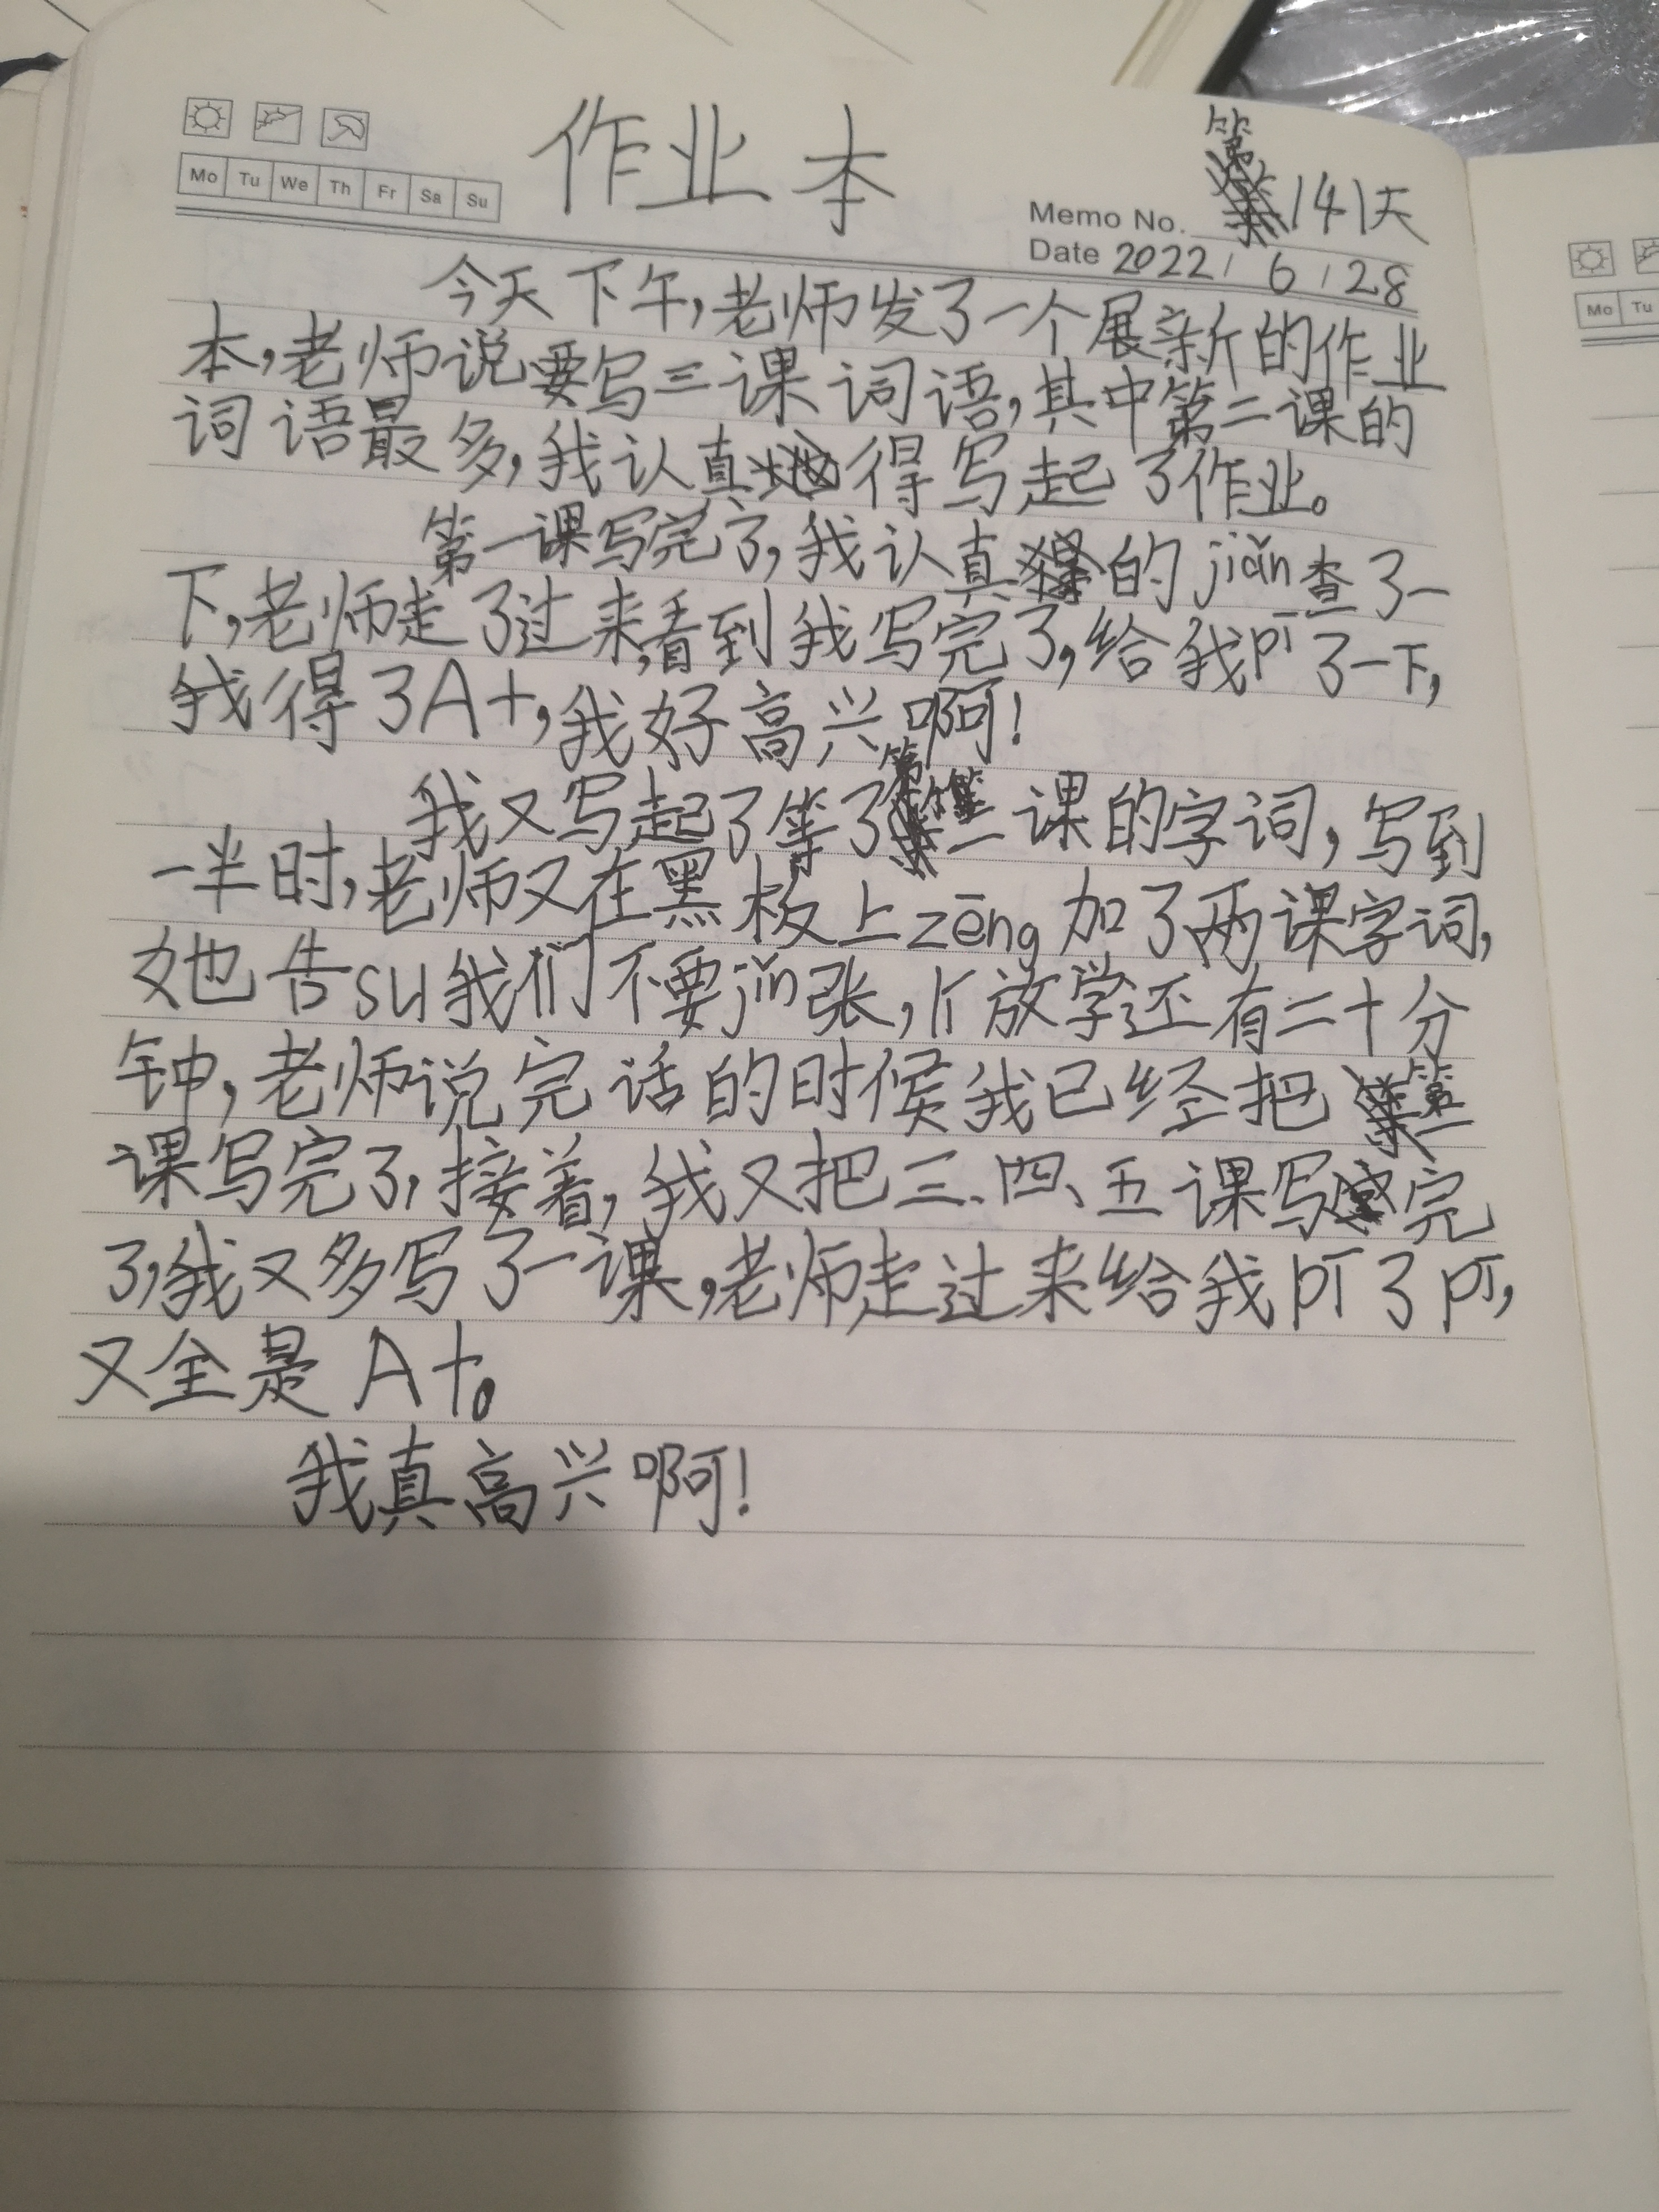 作业本
Mo Tu We Th Fr Sa Su
Memo No. 第141天
Date 2022/6/28
今天下午,老师发了一个展新的作业
本,老师说要写三课词语,其中第二课的
词语最多,我认真得写起了作业。
第一课写完了,我认真的jiǎn查了一
下,老师走了过来,看到我写完了,给我pī了一下,
我得了A+,我好高兴啊!
我又写起了等了第二课的字词,写到
一半时,老师又在黑板上zēng加了两课字词,
她告su我们不要jǐn张,下放学还有二十分
钟,老师说完话的时候我已经把第二
课写完了,接着,我又把三、四、五课写完
了,我又多写了一课,老师走过来给我pī了pī,
又全是A+。
我真高兴啊!
Mo Tu